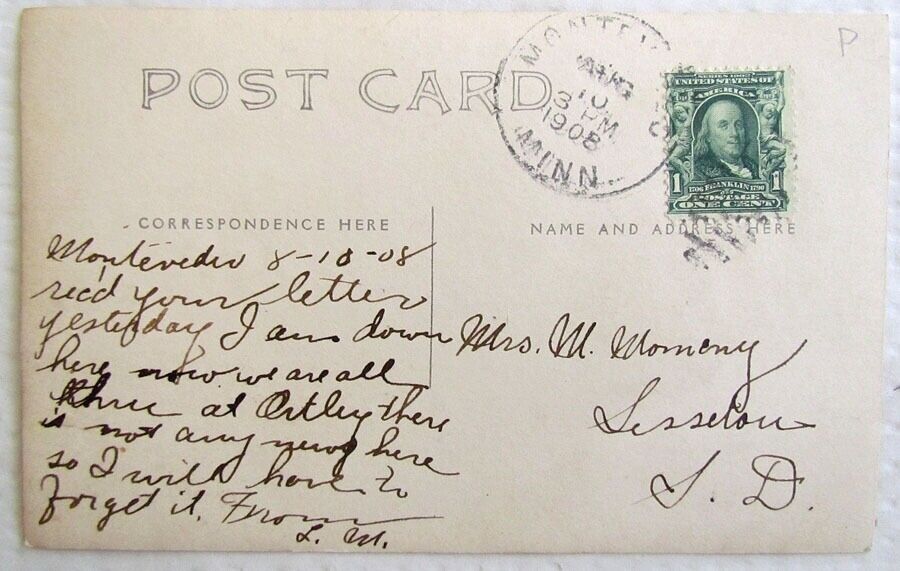 POST CARD
MONTEV
AUG
10
3 PM
1908
MINN
SERIES 1902
UNITED STATES OF
AMERICA
1 1706 FRANKLIN 1790 1
POSTAGE
ONE CENT
P
CORRESPONDENCE HERE
NAME AND ADDRESS HERE
Montevedio 8-10-08
recd your letter
yesterday I am down
here now we are all
three at Ortley there
is not any news here
so I will have to
forget it. From
L. M.
Mrs. M. Momeny
Sisseton
S. D.